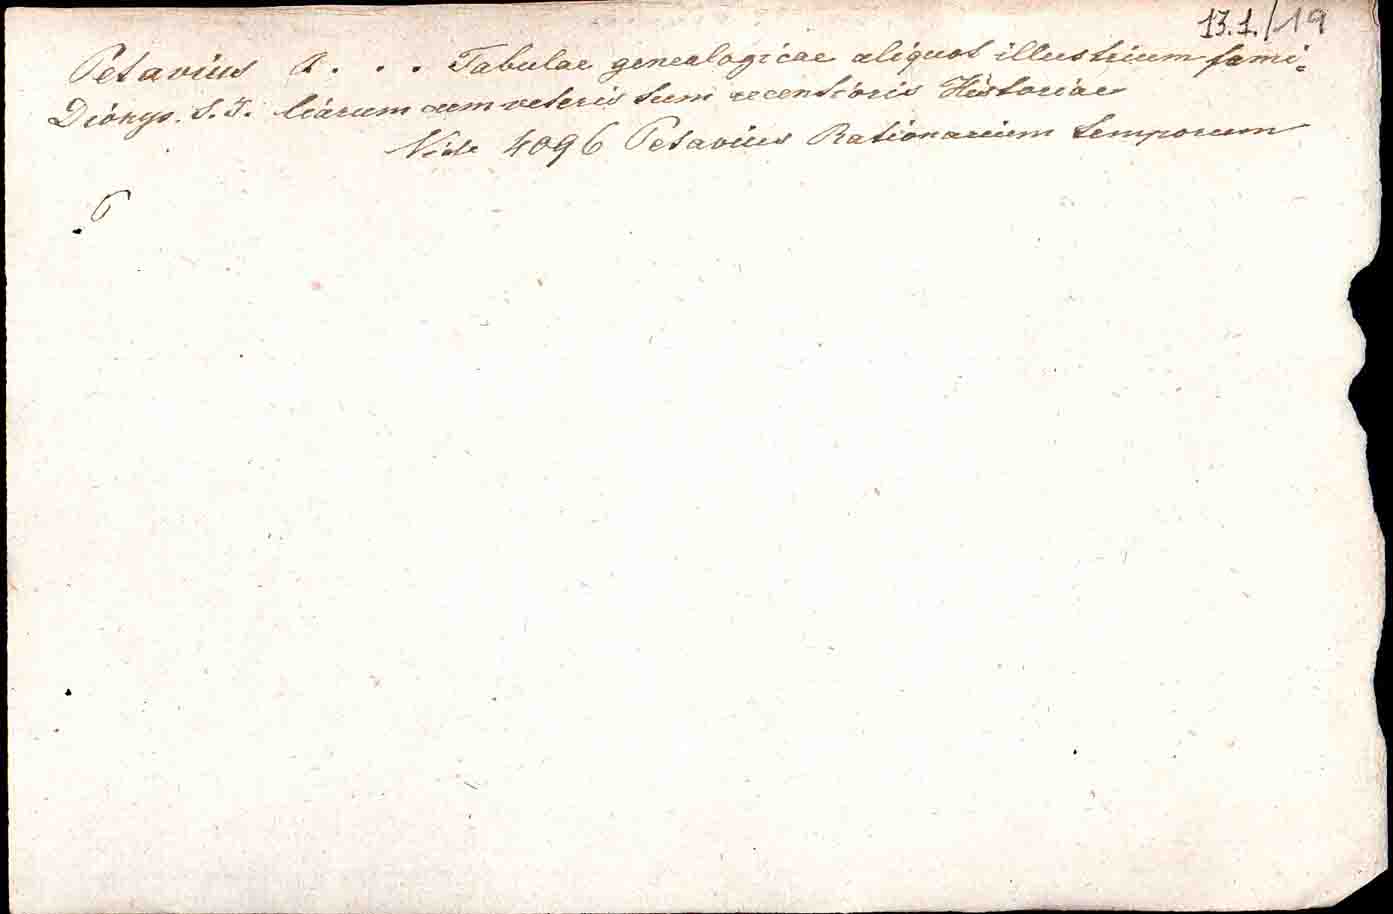 13.1./19
Petavius A . . . Tabulae genealogicae aliquot illustrium fami-
Dionys. S. J. liarum cum veteris tum recentioris Historiae
Vide 4096 Petavius Rationarium temporum
6